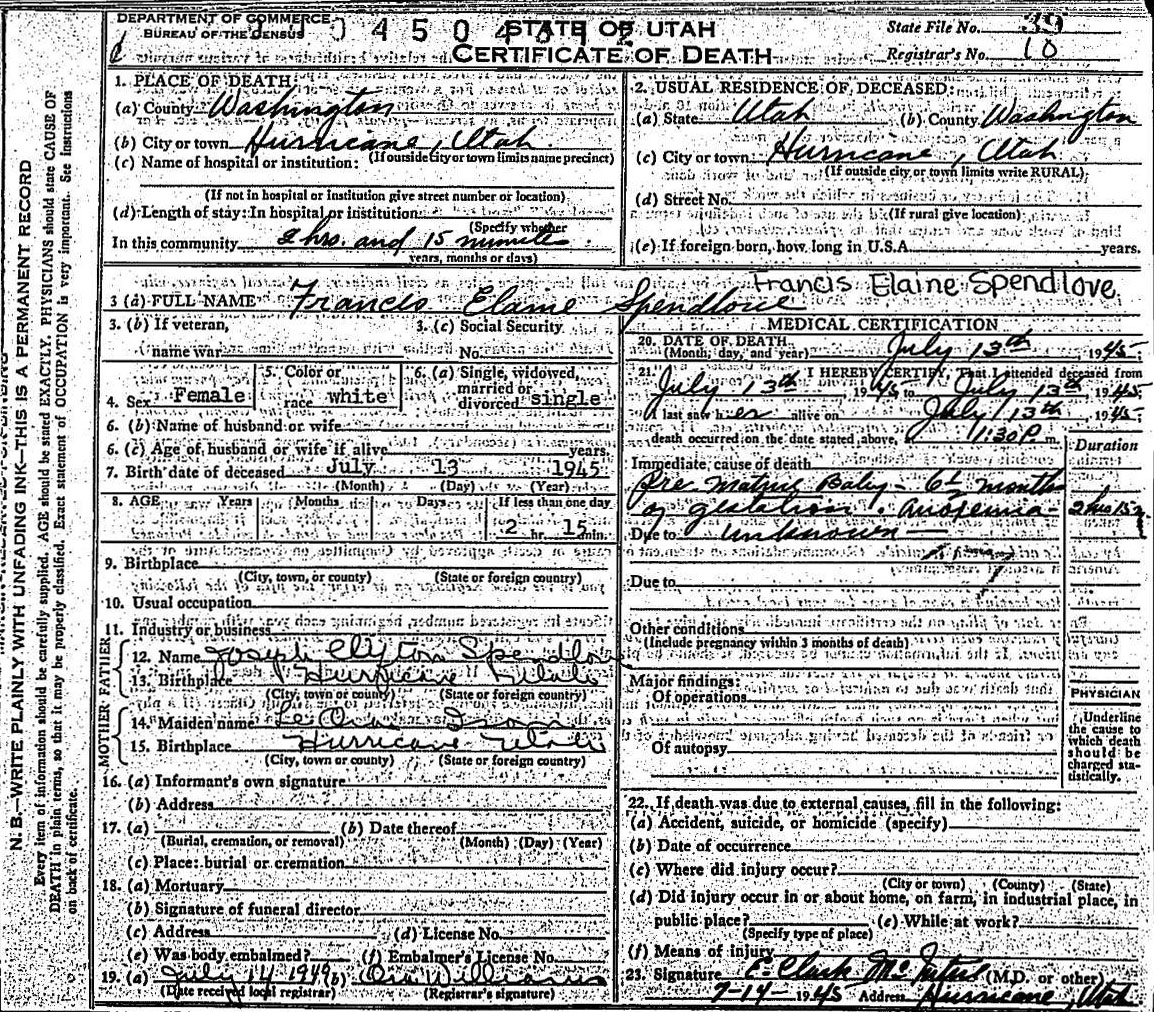 DEPARTMENT OF COMMERCE
BUREAU OF THE CENSUS
0 4 5 0 4
STATE OF UTAH
CERTIFICATE OF DEATH
State File No. 39
Registrar's No. 10
N. B.—WRITE PLAINLY WITH UNFADING INK—THIS IS A PERMANENT RECORD
Every item of information should be carefully supplied. AGE should be stated EXACTLY. PHYSICIANS should state CAUSE OF
DEATH in plain terms, so that it may be properly classified. Exact statement of OCCUPATION is very important. See instructions
on back of certificate.
1. PLACE OF DEATH:
(a) County Washington
(b) City or town Hurricane, Utah
(If outside city or town limits name precinct)
(c) Name of hospital or institution:
(If not in hospital or institution give street number or location)
(d) Length of stay: In hospital or institution
(Specify whether
In this community 2 hrs. and 15 minutes
years, months or days)
2. USUAL RESIDENCE OF DECEASED:
(a) State Utah (b) County Washington
(c) City or town Hurricane, Utah
(If outside city or town limits write RURAL)
(d) Street No.
(If rural give location)
(e) If foreign born, how long in U.S.A. years.
3 (a) FULL NAME Francis Elaine Spendlove
Francis Elaine Spendlove
3. (b) If veteran,
name war
3. (c) Social Security
No.
4. Sex Female
5. Color or
race white
6. (a) Single, widowed,
married or
divorced single
6. (b) Name of husband or wife
6. (c) Age of husband or wife if alive years.
7. Birth date of deceased July 13 1945
(Month) (Day) (Year)
8. AGE Years Months Days If less than one day
2 hr. 15 min.
9. Birthplace
(City, town, or county) (State or foreign country)
10. Usual occupation
11. Industry or business
FATHER
12. Name Joseph Clyton Spendlove
13. Birthplace Hurricane Utah
(City, town or county) (State or foreign country)
MOTHER
14. Maiden name Isom
15. Birthplace Hurricane Utah
(City, town or county) (State or foreign country)
16. (a) Informant's own signature
(b) Address
17. (a) (b) Date thereof
(Burial, cremation, or removal) (Month) (Day) (Year)
(c) Place: burial or cremation
18. (a) Mortuary
(b) Signature of funeral director
(c) Address (d) License No.
(e) Was body embalmed? (f) Embalmer's License No.
19. (a) July 14 1949 (b) Williams
(Date received local registrar) (Registrar's signature)
MEDICAL CERTIFICATION
20. DATE OF DEATH
(Month, day, and year) July 13th, 1945
21. I HEREBY CERTIFY, That I attended deceased from
July 13th, 1945 to July 13th, 1945
I last saw her alive on July 13th, 1945
death occurred on the date stated above, 1:30 P m.
Duration
Immediate cause of death
Pre mature Baby - 6½ months
of gestation. Anoxemia - 2 hrs 15
Due to unknown
Due to
Other conditions
(Include pregnancy within 3 months of death)
Major findings:
Of operations
Of autopsy
PHYSICIAN
Underline
the cause to
which death
should be
charged sta-
tistically.
22. If death was due to external causes, fill in the following:
(a) Accident, suicide, or homicide (specify)
(b) Date of occurrence
(c) Where did injury occur?
(City or town) (County) (State)
(d) Did injury occur in or about home, on farm, in industrial place, in
public place? (e) While at work?
(Specify type of place)
(f) Means of injury
23. Signature Clark (M.D. or other)
7-14-1945 Address Hurricane, Utah